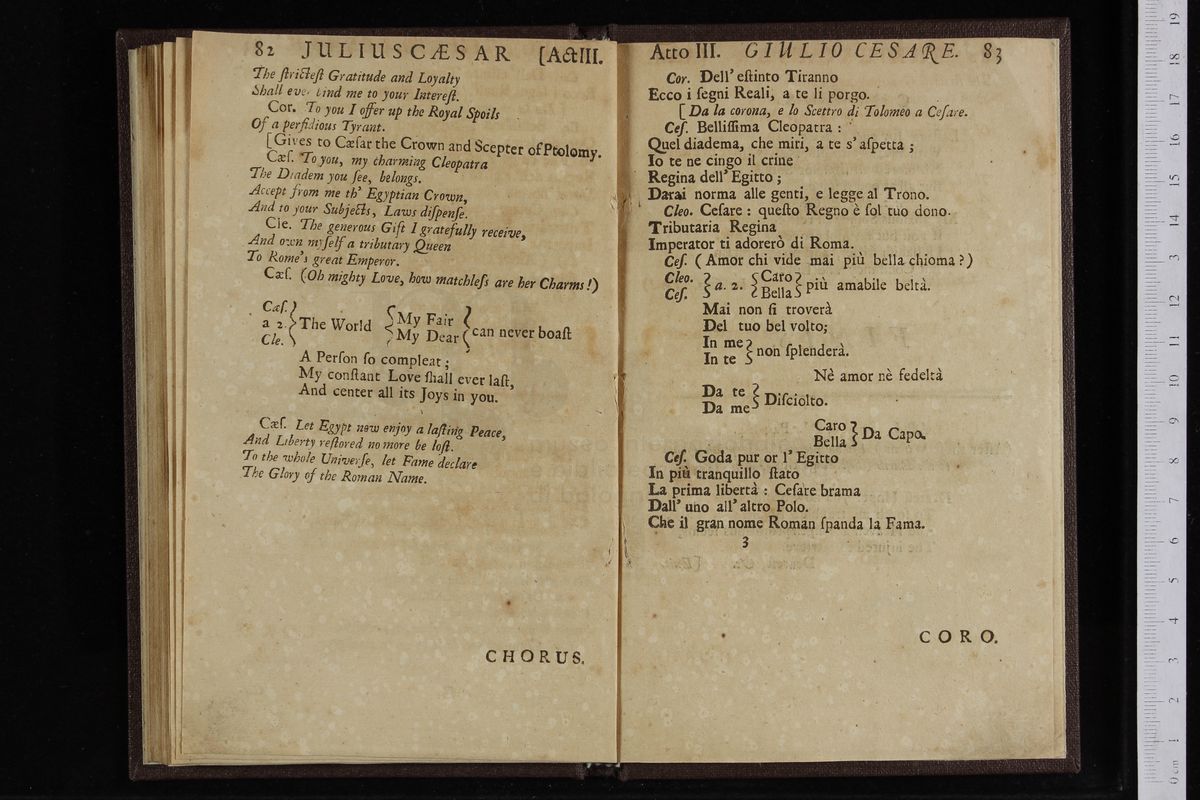 82 JULIUS CÆSAR [Act III.
The ſtricteſt Gratitude and Loyalty
Shall ever bind me to your Intereſt.
Cor. To you I offer up the Royal Spoils
Of a perfidious Tyrant.
[Gives to Cæſar the Crown and Scepter of Ptolomy.
Cæſ. To you, my charming Cleopatra
The Diadem you ſee, belongs.
Accept from me th' Egyptian Crown,
And to your Subjects, Laws diſpenſe.
Cle. The generous Gift I gratefully receive,
And own myſelf a tributary Queen
To Rome's great Emperor.
Cæſ. (Oh mighty Love, how matchleſs are her Charms!)
Cæſ.
a 2. } The World { My Fair } can never boaſt
Cle. My Dear
A Perſon ſo compleat;
My conſtant Love ſhall ever laſt,
And center all its Joys in you.
Cæſ. Let Egypt now enjoy a laſting Peace,
And Liberty reſtored no more be loſt.
To the whole Univerſe, let Fame declare
The Glory of the Roman Name.
CHORUS.
Atto III. GIULIO CESARE. 83
Cor. Dell' eſtinto Tiranno
Ecco i ſegni Reali, a te li porgo.
[Da la corona, e lo Scettro di Tolomeo a Ceſare.
Ceſ. Belliſſima Cleopatra :
Quel diadema, che miri, a te s' aſpetta ;
Io te ne cingo il crine
Regina dell' Egitto ;
Darai norma alle genti, e legge al Trono.
Cleo. Ceſare : queſto Regno è ſol tuo dono.
Tributaria Regina
Imperator ti adorerò di Roma.
Ceſ. (Amor chi vide mai più bella chioma ?)
Cleo. } a. 2. { Caro } più amabile beltà.
Ceſ. Bella
Mai non ſi troverà
Del tuo bel volto;
In me } non ſplenderà.
In te
Nè amor nè fedeltà
Da te } Diſciolto.
Da me
Caro } Da Capo.
Bella
Ceſ. Goda pur or l' Egitto
In più tranquillo ſtato
La prima libertà : Ceſare brama
Dall' uno all' altro Polo.
Che il gran nome Roman ſpanda la Fama.
3
CORO.
0 cm 1 2 3 4 5 6 7 8 9 10 11 12 13 14 15 16 17 18 19